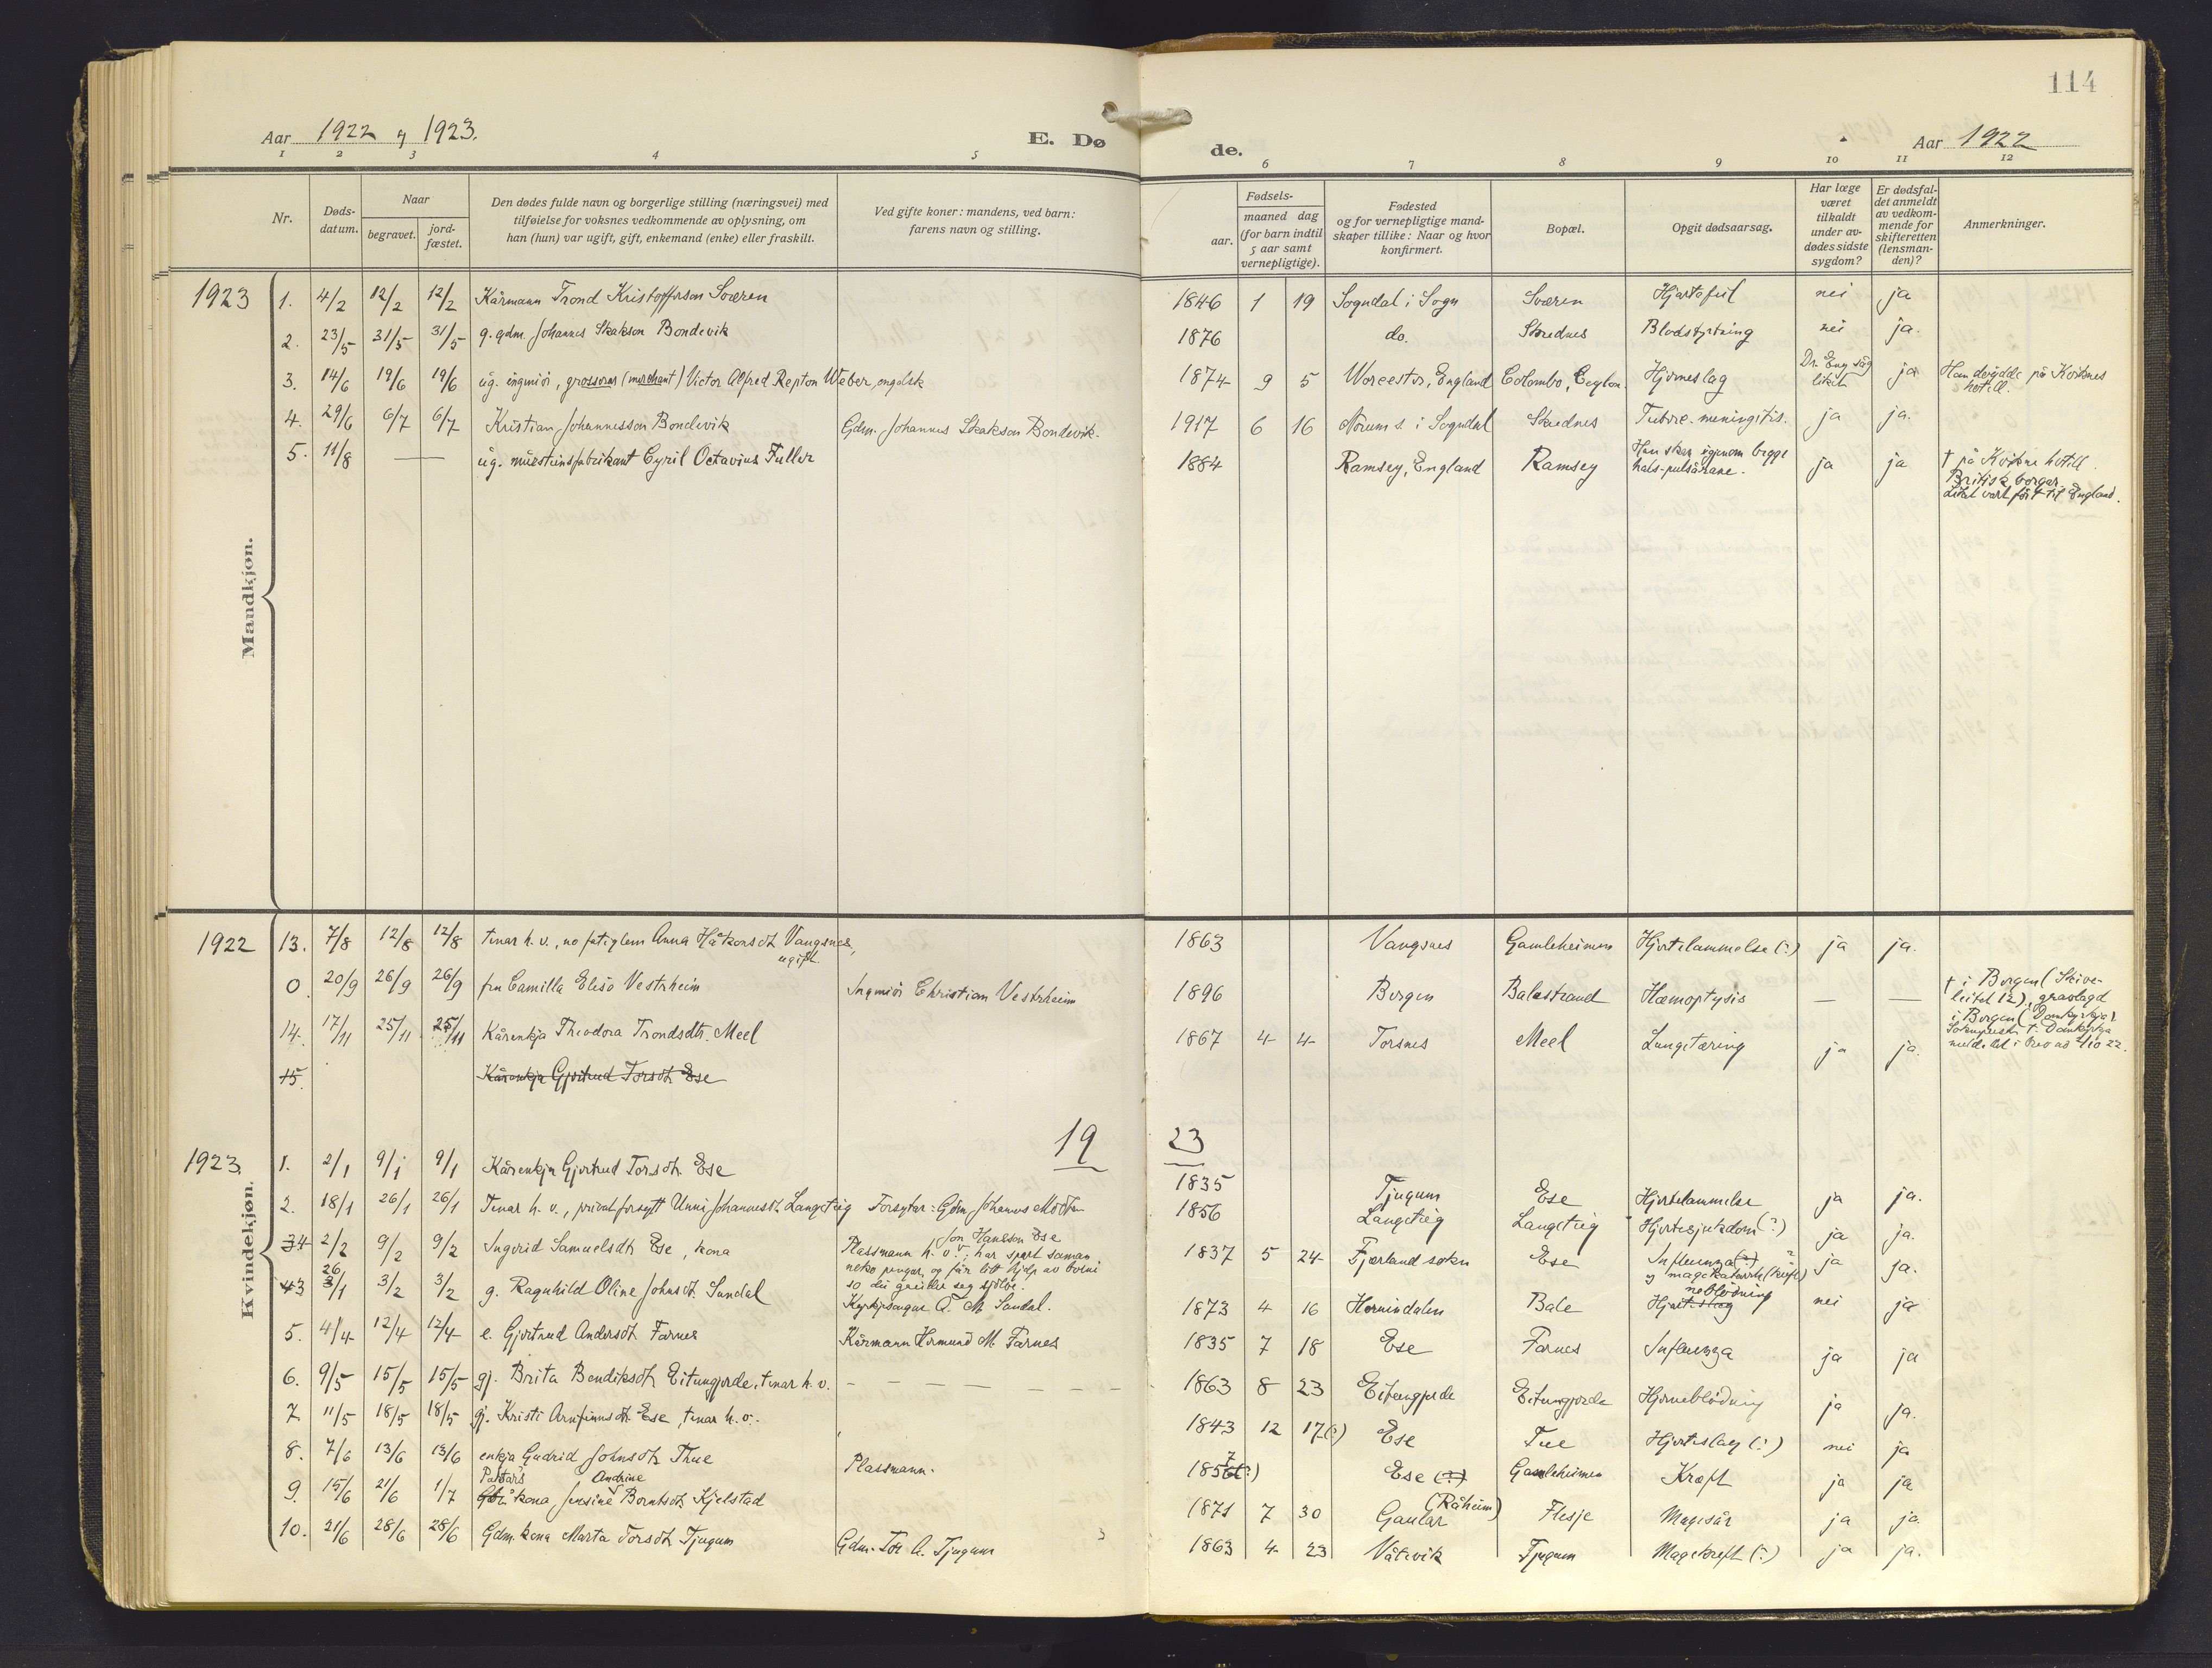 114
Aar 1922 og 1923.
E. Dø
de.
Aar 1922
1 2 3 4 5 6 7 8 9 10 11 12
Nr.
Døds-
datum.
Naar
begravet.
jord-
fæstet.
Den dødes fulde navn og borgerlige stilling (næringsvei) med
tilføielse for voksnes vedkommende av oplysning, om
han (hun) var ugift, gift, enkemand (enke) eller fraskilt.
Ved gifte koner: mandens, ved barn:
farens navn og stilling.
Fødsels-
aar.
maaned dag
(for barn indtil
5 aar samt
vernepligtige).
Fødested
og for vernepligtige mand-
skaper tillike: Naar og hvor
konfirmert.
Bopæl.
Opgit dødsaarsag.
Har læge
været
tilkaldt
under av-
dødes sidste
sygdom?
Er dødsfal-
det anmeldt
av vedkom-
mende for
skifteretten
(lensman-
den)?
Anmerkninger.
Mandkjøn.
1923 1. 4/2 12/2 12/2 Kårmann Trond Kristofferson Sværen 1846 1 19 Sogndal i Sogn Sværen Hjartefeil nei ja
2. 23/5 31/5 31/5 g. gdm. Johannes Skakson Bondevik 1876 do. Skrednes Blodstyrtning nei ja.
3. 14/6 19/6 19/6 ug. ingeniør, grosserer (merchant) Victor Alfred Repton Weber, engelsk 1874 9 5 Worcester, England Colombo, Ceylon. Hjerneslag Dr. Eng såg liket ja Han døydde på Kviknes
hotell.
4. 29/6 6/7 6/7 Kristian Johannesson Bondevik Gdm. Johannes Skakson Bondevik. 1917 6 16 Norum s. i Sogndal Skrednes Tuberc. meningitis. ja ja.
5. 11/8 — ug. mursteinsfabrikant Cyril Octavius Fuller 1884 Ramsey, England Ramsey Han skar igjenom begge
hals-pulsårane. ja ja † på Kvikne hotell.
Britisk borgar.
Liket vart ført til England.
Kvindekjøn.
1922 13. 7/8 12/8 12/8 tenar h. v., no fatiglem Anna Håkonsdt. Vangsnes,
ugift. 1863 Vangsnes Gamleheimen Hjertelammelse (?) ja ja.
0. 20/9 26/9 26/9 fru Camilla Elisa Vestrheim Ingeniør Christian Vestrheim 1896 Bergen Balestrand Hæmoptysis — — † i Bergen (Skive-
leitet 12), gravlagd
i Bergen (Domkyrkja).
14. 17/11 25/11 25/11 Kårenkja Theodora Trondsdtr. Meel 1867 4 4 Torsnes Meel Lungetæring ja ja
15. Kårenkja Gjertrud Torsdt. Ese
19 23
1923. 1. 2/1 9/1 9/1 Kårenkja Gjertrud Torsdt. Ese 1835 Tjugum Ese Hjertelammelse ja ja.
2. 18/1 26/1 26/1 Tenar h. v., privat forsytt Unni Johannesdt. Langeteig Forsytar: Gdm. Johannes 1856 Langeteig Langeteig Hjertesjukdom (?) ja ja.
34 2/2 9/2 9/2 Ingerid Samuelsdt. Ese, kona Plassmann h. v. Jon Hansson Ese; har spart saman
neko pengar, og fær litt hjelp av borni
so dei greidde seg sjølve. 1837 5 24 Fjærland sokn Ese Influenza (?)
og magekatarrh (kreft)? ja ja.
43 26/1 3/2 3/2 g. Ragnhild Oline Johnsdt. Sundal Kyrkjesongar A. M. Sundal. 1873 4 16 Hornindalen Bale Hjerteslag nei ja
5. 4/4 12/4 12/4 e. Gjertrud Andersdt. Farnes Kårmann Hermund M. Farnes 1835 7 18 Ese Farnes Influenza ja ja
6. 9/5 15/5 15/5 gj. Brita Bendiksdt. Eitungjerde, tenar h. v. — — — — — — 1863 8 23 Eitungjerde Eitungjerde Hjerneblødning ja ja.
7. 11/5 18/5 18/5 gj. Kristi Arnfinnsdt. Ese, tenar h. v. 1843 12 17(?) Ese Tue Hjerteslag (?) nei ja
8. 7/6 13/6 13/6 enkja Gudrid Johnsdt. Thue Plassmann. 1857 Ese (?) Gamleheimen Kræft ja ja
9. 15/6 21/6 1/7 kona Jensine Andrine Berntsdt. Kjelstad 1871 7 30 Gaular (Råheim) Flesje Magesår ja ja.
10. 21/6 28/6 28/6 Gdm. kona Marta Torsdt. Tjugum Gdm. Tor A. Tjugum 1863 4 23 Våtevik Tjugum Magekreft (?) ja ja.